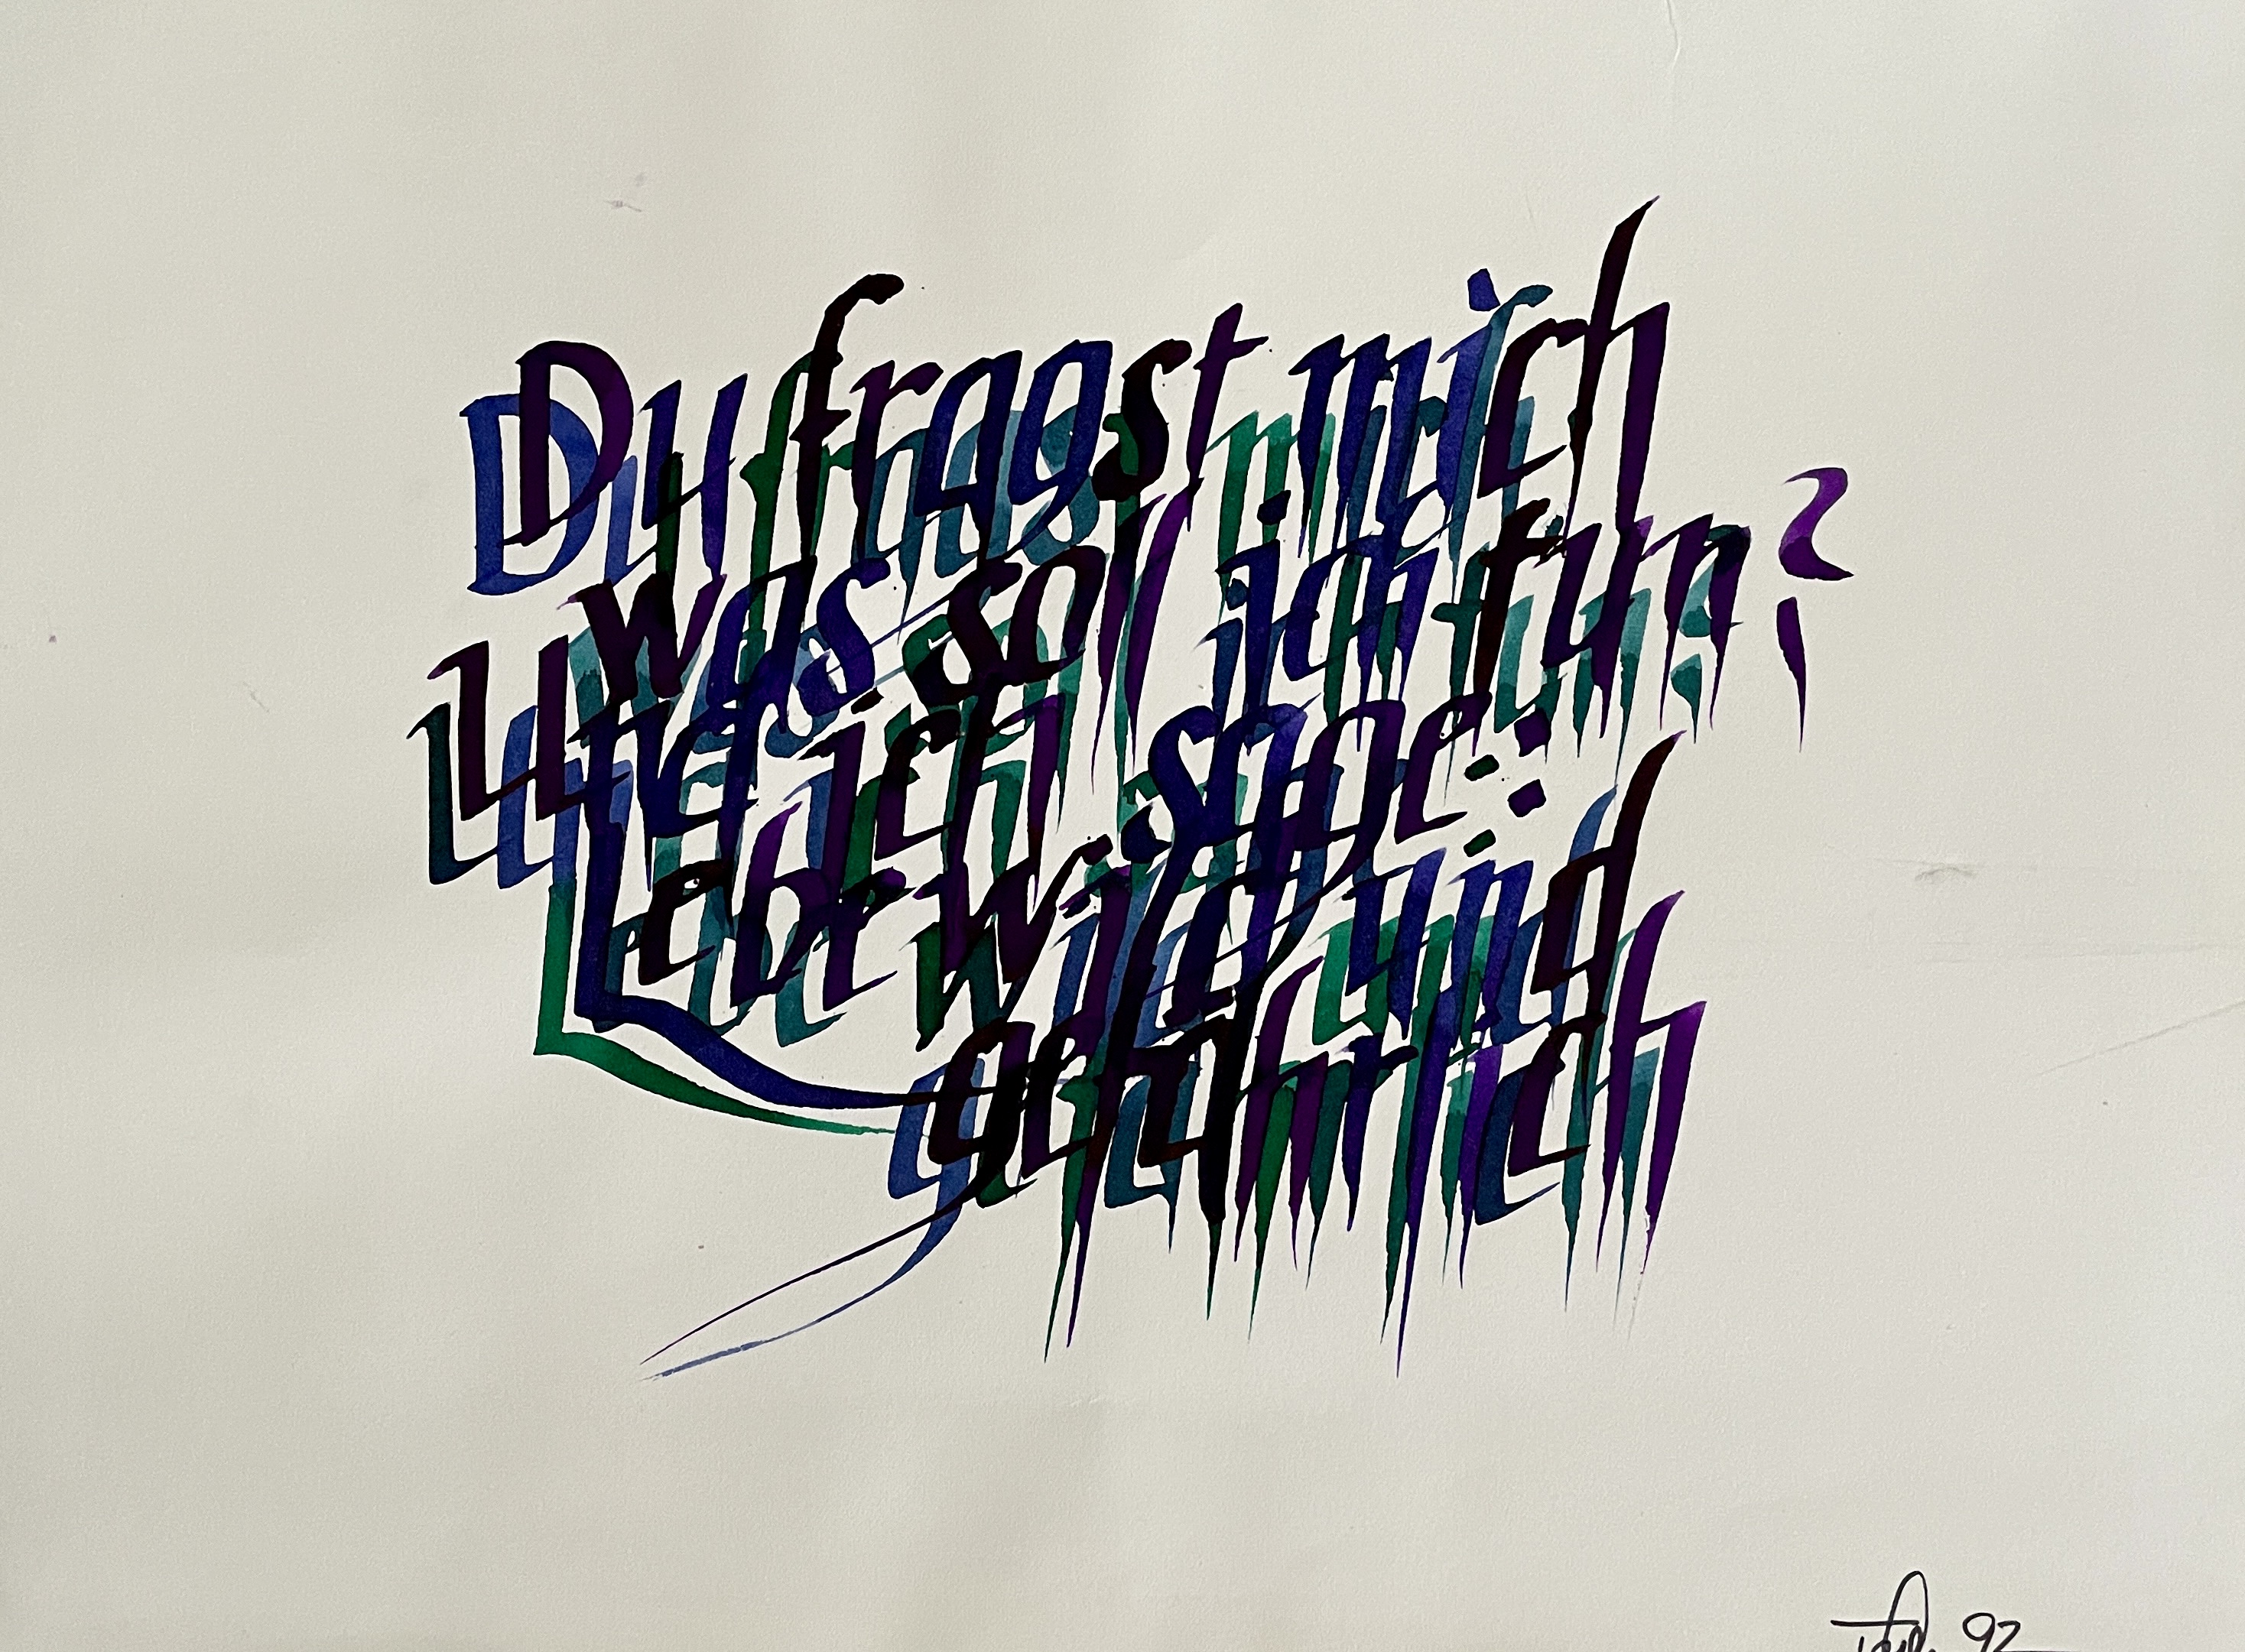 Du fragst mich
was soll ich tun?
Und ich sage:
Lebe wild und
gefährlich
92